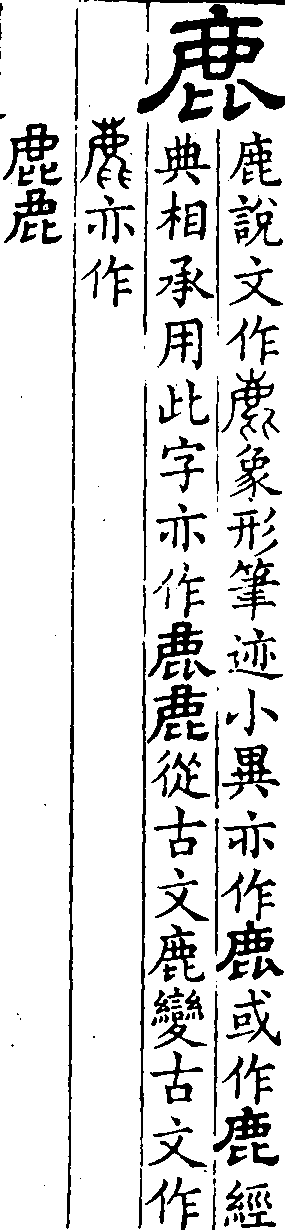 鹿
鹿說文作鹿象形筆迹小異亦作鹿或作鹿經
典相承用此字亦作鹿鹿從古文鹿變古文作
鹿亦作